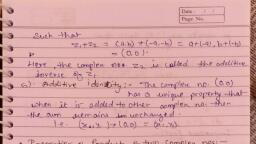 Date :
Page No.
Such that
z₁+z₂ = (a,b) + (-a,-b) = a+(-a), b+(-b)
= (0,0).
Here, the complex no. z₂ is called the additive
inverse of z₁
Additive identity :- The complex no. (0,0)
has a unique property that
when it is added to other complex no. then
the sum remains unchanged